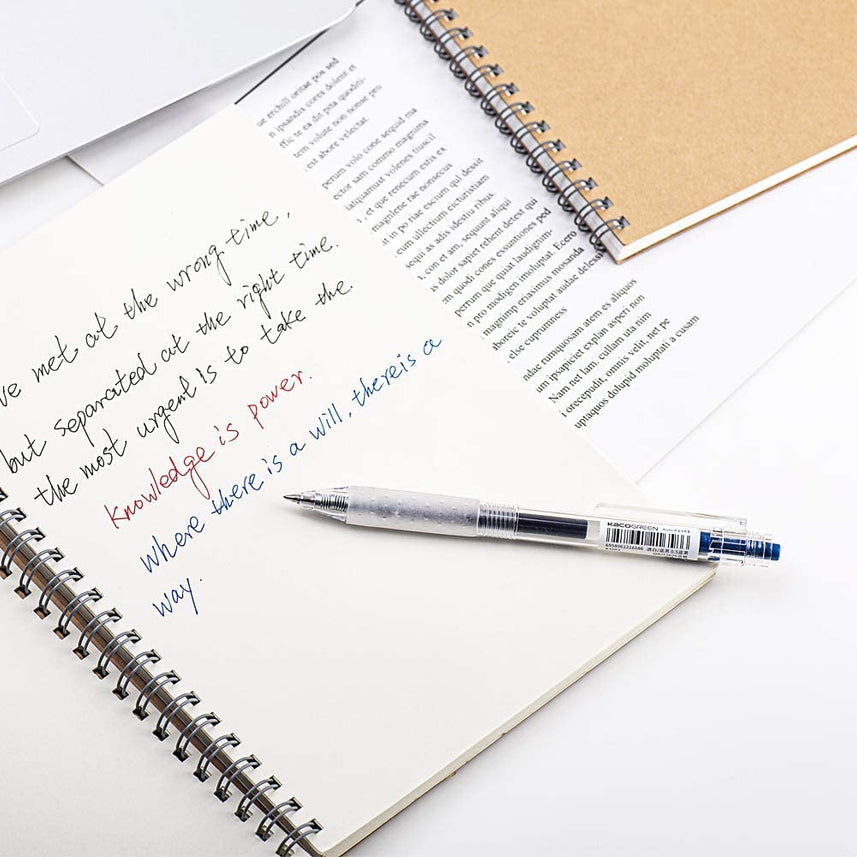 ve met at the wrong time,
but separated at the right time.
the most urgent is to take the.
knowledge is power.
where there is a will, there is a
way.
KACOGREEN
6958961216586
ue erchill oritae pos and
n ipsandis cores dolent et
ffic te ea dit pita quodini-
tem volute non nonse pro
est abore velectat.
perum volo cone sequid ma
ector sam commo magnima
iatquamust volenes tiuscil
, et que renecum estis ex
magnilene rae nonsecus
it in po niae escium qui dessit
eum ullectium eicturistiam
sequi as adis idestiu ribus.
, con et am, sequunt aliqui
dolor sapiet rehent delest qui
m quodi cones essuntiones pod
perum que quiat laudignim-
n pro modigen imoluptat. Ecero
magnimp eriasimus mosanda
aboreic te voluptat audae deless
else cuprumness
ndae rumquosam atem es aliquos
um ipsapiciet explan asperi non
Nam net lam, cullam uta nim
i orecepudit, omnis velit, net pe
uptaquos dolupid moluptati a cusam